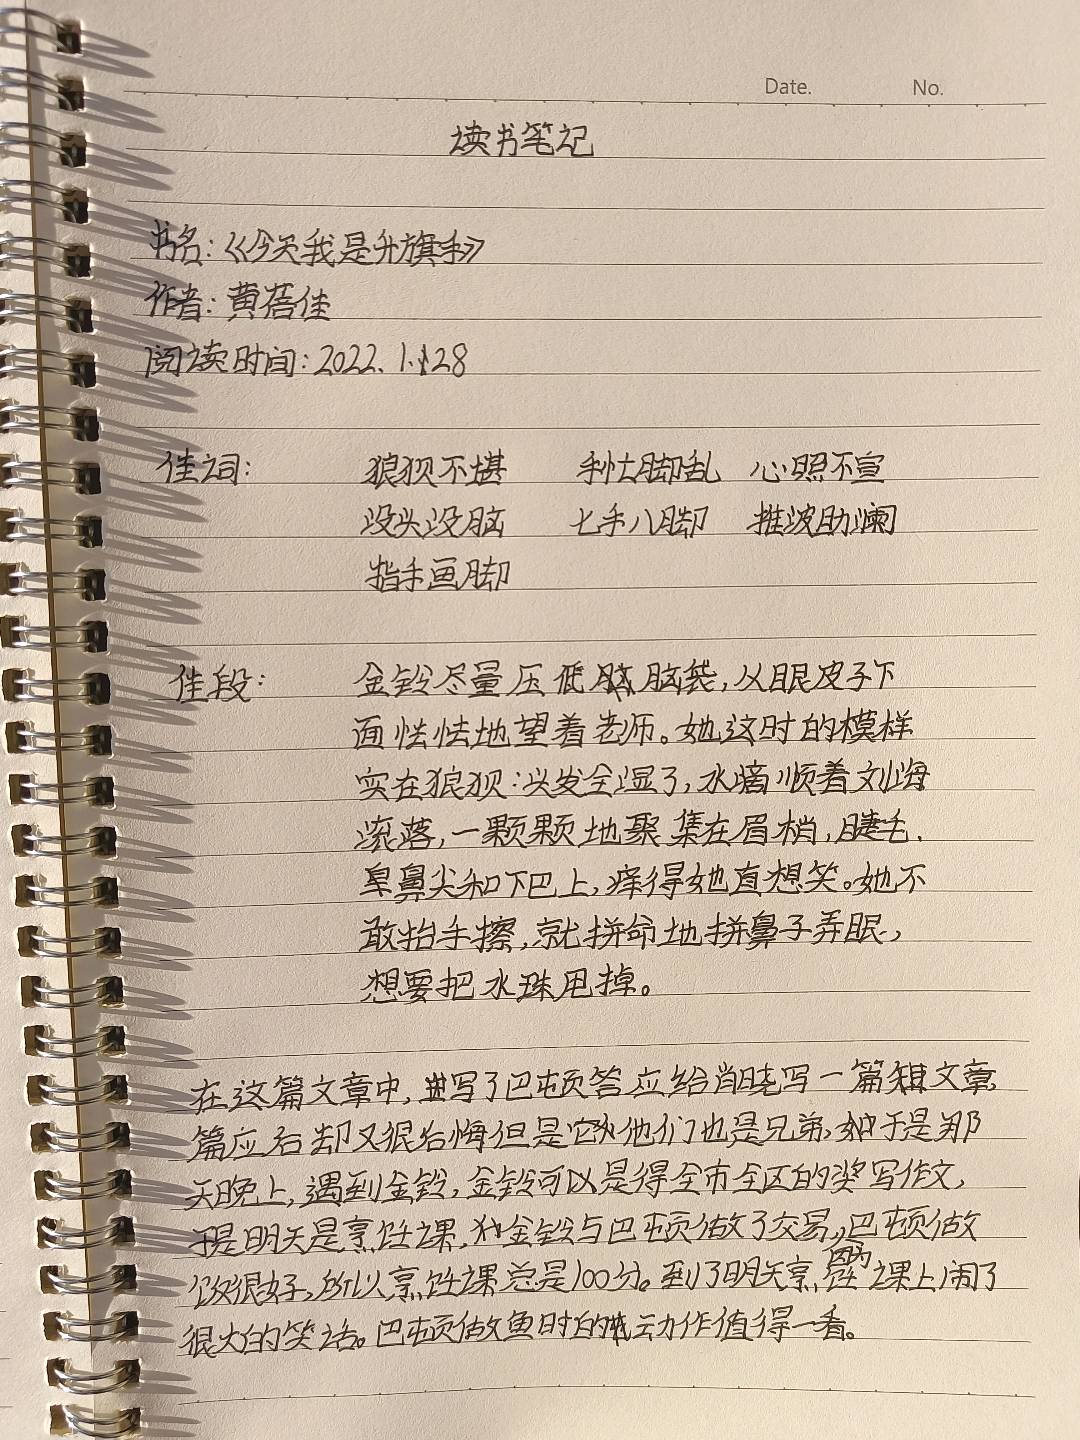 Date. No.
读书笔记
书名:《今天我是升旗手》
作者:黄蓓佳
阅读时间:2022.1.28
佳词: 狼狈不堪 手忙脚乱 心照不宣
没头没脑 七手八脚 推波助澜
指手画脚
佳段: 金铃尽量压低脑袋,从眼皮子下
面怯怯地望着老师。她这时的模样
实在狼狈:头发全湿了,水滴顺着刘海
滚落,一颗颗地聚集在眉梢,睫毛、
鼻尖和下巴上,痒得她直想笑。她不
敢抬手擦,就拼命地拼鼻子弄眼,
想要把水珠甩掉。
在这篇文章中,写了巴顿答应给肖晓写一篇文章,
篇应后却又很后悔但是他们也是兄弟,于是那
天晚上,遇到金铃,金铃可以是得全市全区的奖写作文,
于是明天是烹饪课,金铃与巴顿做了交易,因为巴顿做
饭很好,所以烹饪课总是100分。到了明天烹饪课上闹了
很大的笑话。巴顿做鱼时的动作值得一看。